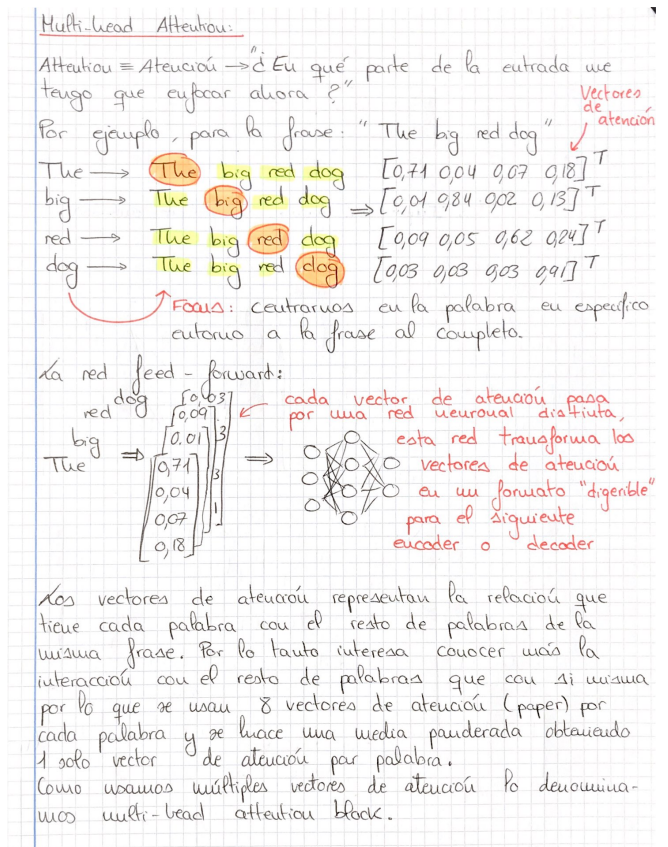 Multi-head Attention:
Attention ≡ Atención → "¿En qué parte de la entrada me
tengo que enfocar ahora?"
Vectores
de
atención
Por ejemplo, para la frase: "The big red dog"
The → The big red dog [0,71 0,04 0,07 0,18]ᵀ
big → The big red dog ⇒ [0,01 0,84 0,02 0,13]ᵀ
red → The big red dog [0,09 0,05 0,62 0,24]ᵀ
dog → The big red dog [0,03 0,03 0,03 0,91]ᵀ
Focus: centrarnos en la palabra en específico
entorno a la frase al completo.
La red feed-forward:
dog [0,03]
red [0,09]
big [0.01]
The ⇒ [0,71
0,04
0,07
0,18] ⇒
cada vector de atención pasa
por una red neuronal distinta,
esta red transforma los
vectores de atención
en un formato "digerible"
para el siguiente
encoder o decoder
Los vectores de atención representan la relación que
tiene cada palabra con el resto de palabras de la
misma frase. Por lo tanto interesa conocer más la
interacción con el resto de palabras que con si misma
por lo que se usan 8 vectores de atención (paper) por
cada palabra y se hace una media ponderada obteniendo
1 solo vector de atención por palabra.
Como usamos múltiples vectores de atención lo denomina-
mos multi-head attention block.